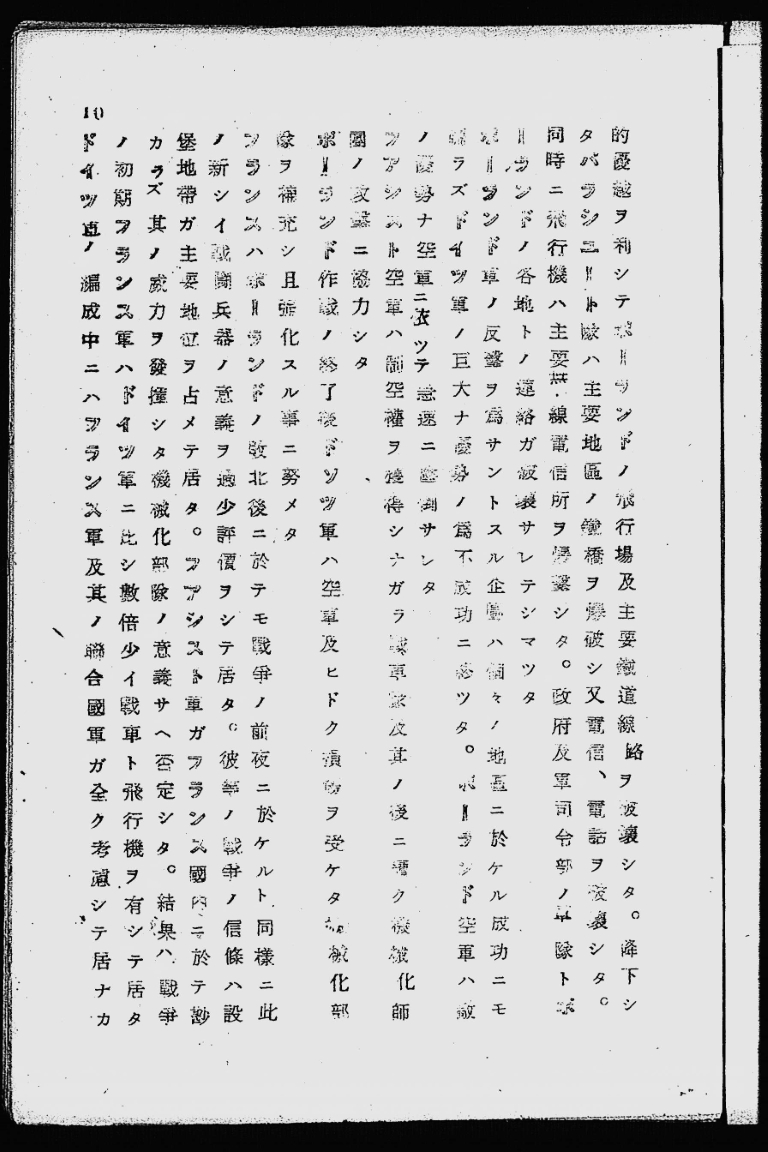 的優越ヲ利シテポーランドノ飛行場及主要鐵道線路ヲ破壞シタ。降下シ
タパラシュート隊ハ主要地區ノ鐵橋ヲ爆破シ又電信、電話ヲ破壞シタ。
同時ニ飛行機ハ主要無線電信所ヲ爆擊シタ。政府及軍司令部ノ軍隊トポ
ーランドノ各地トノ連絡ガ破壞サレテシマツタ
ポーランド軍ノ反擊ヲ爲サントスル企圖ハ個々ノ地區ニ於ケル成功ニモ
拘ラズドイツ軍ノ巨大ナ優勢ノ爲不成功ニ終ツタ。ポーランド空軍ハ敵
ノ優勢ナ空軍ニ依ツテ急速ニ壓倒サレタ
フアシスト空軍ハ制空權ヲ獲得シナガラ戰車隊及其ノ後ニ續ク機械化師
團ノ攻擊ニ協力シタ
ポーランド作戰ノ終了後ドソツ軍ハ空軍及ヒドク損傷ヲ受ケタ機械化部
隊ヲ補充シ且強化スル事ニ努メタ
フランスハポーランドノ敗北後ニ於テモ戰爭ノ前夜ニ於ケルト同樣ニ此
ノ新シイ戰鬪兵器ノ意義ヲ過少評價ヲシテ居タ。彼等ノ戰爭ノ信條ハ設
堡地帶ガ主要地位ヲ占メテ居タ。フアシスト軍ガフランス國內ニ於テ尠
カラズ其ノ威力ヲ發揮シタ機械化部隊ノ意義サヘ否定シタ。結果ハ戰爭
ノ初期フランス軍ハドイツ軍ニ比シ數倍少イ戰車ト飛行機ヲ有シテ居タ
ドイツ軍ノ編成中ニハフランス軍及其ノ聯合國軍ガ全ク考慮シテ居ナカ
10